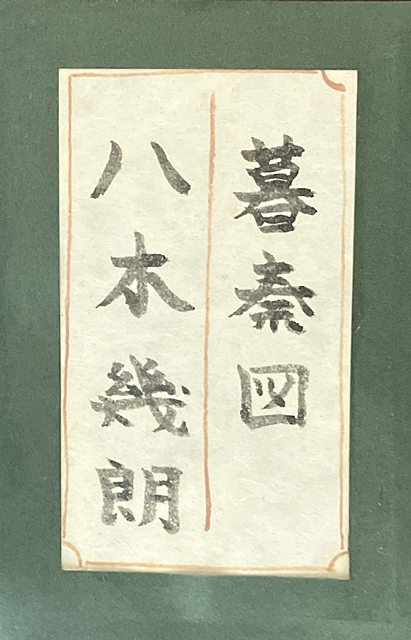 暮秦図
八木幾朗